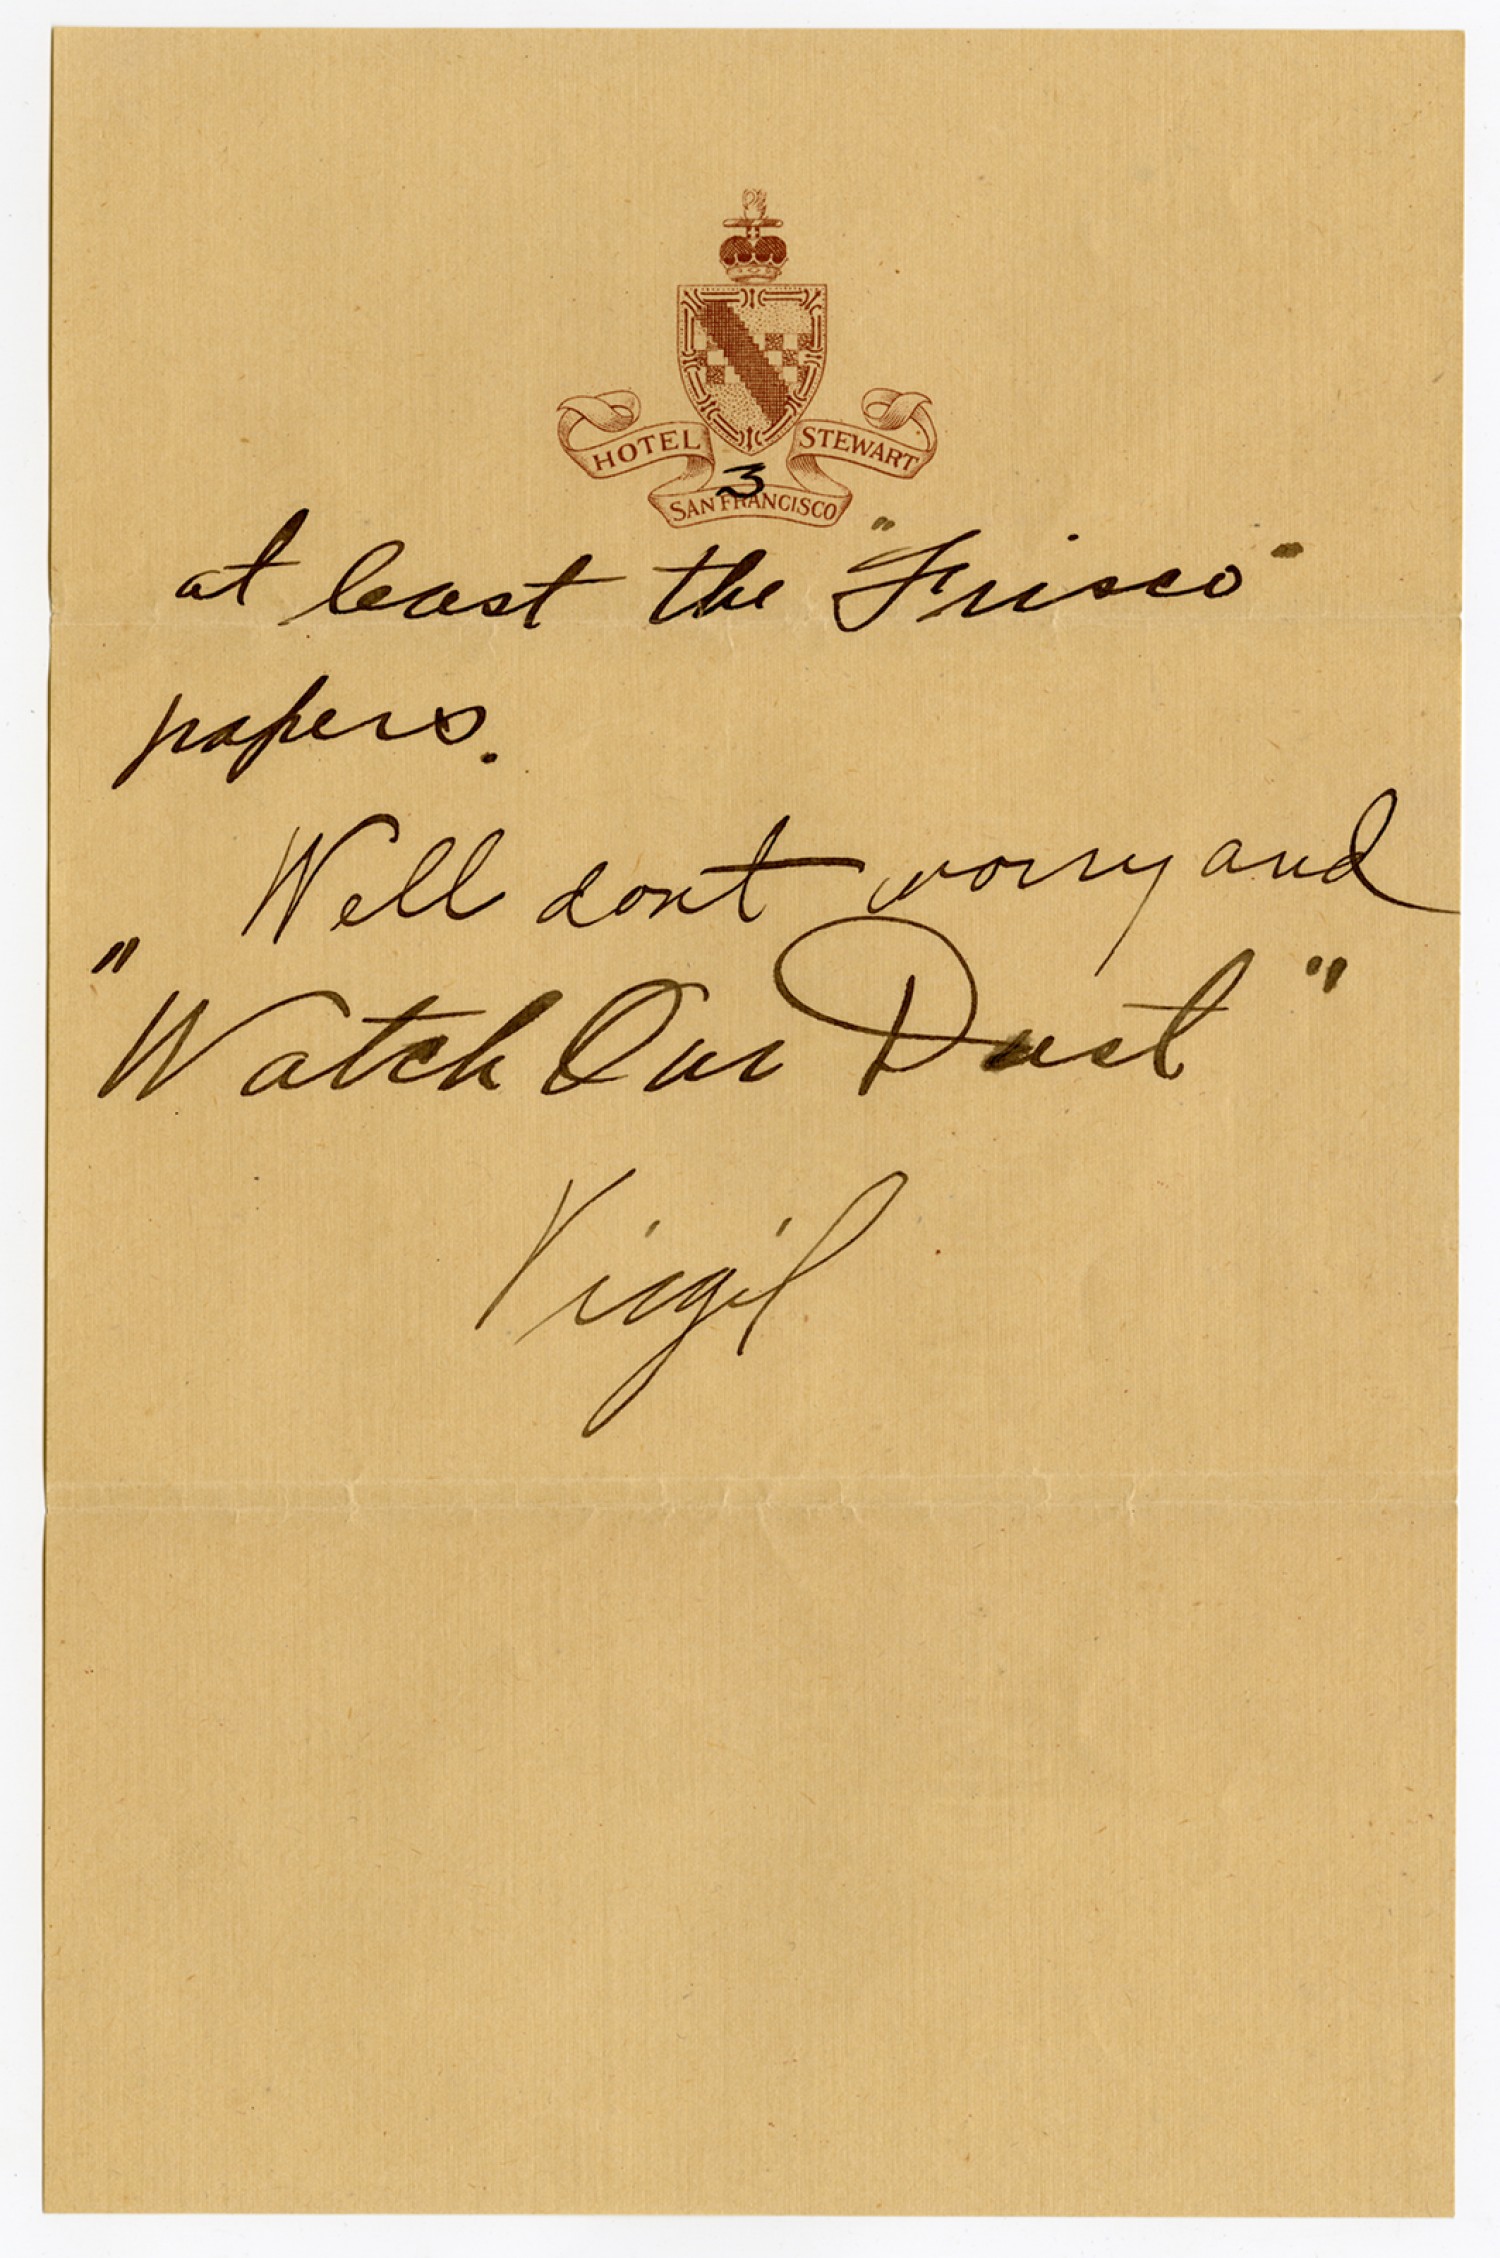 HOTEL STEWART
3
SAN FRANCISCO
at least the "Frisco"
papers.
Well dont worry and
"Watch Our Dust"
Virgil